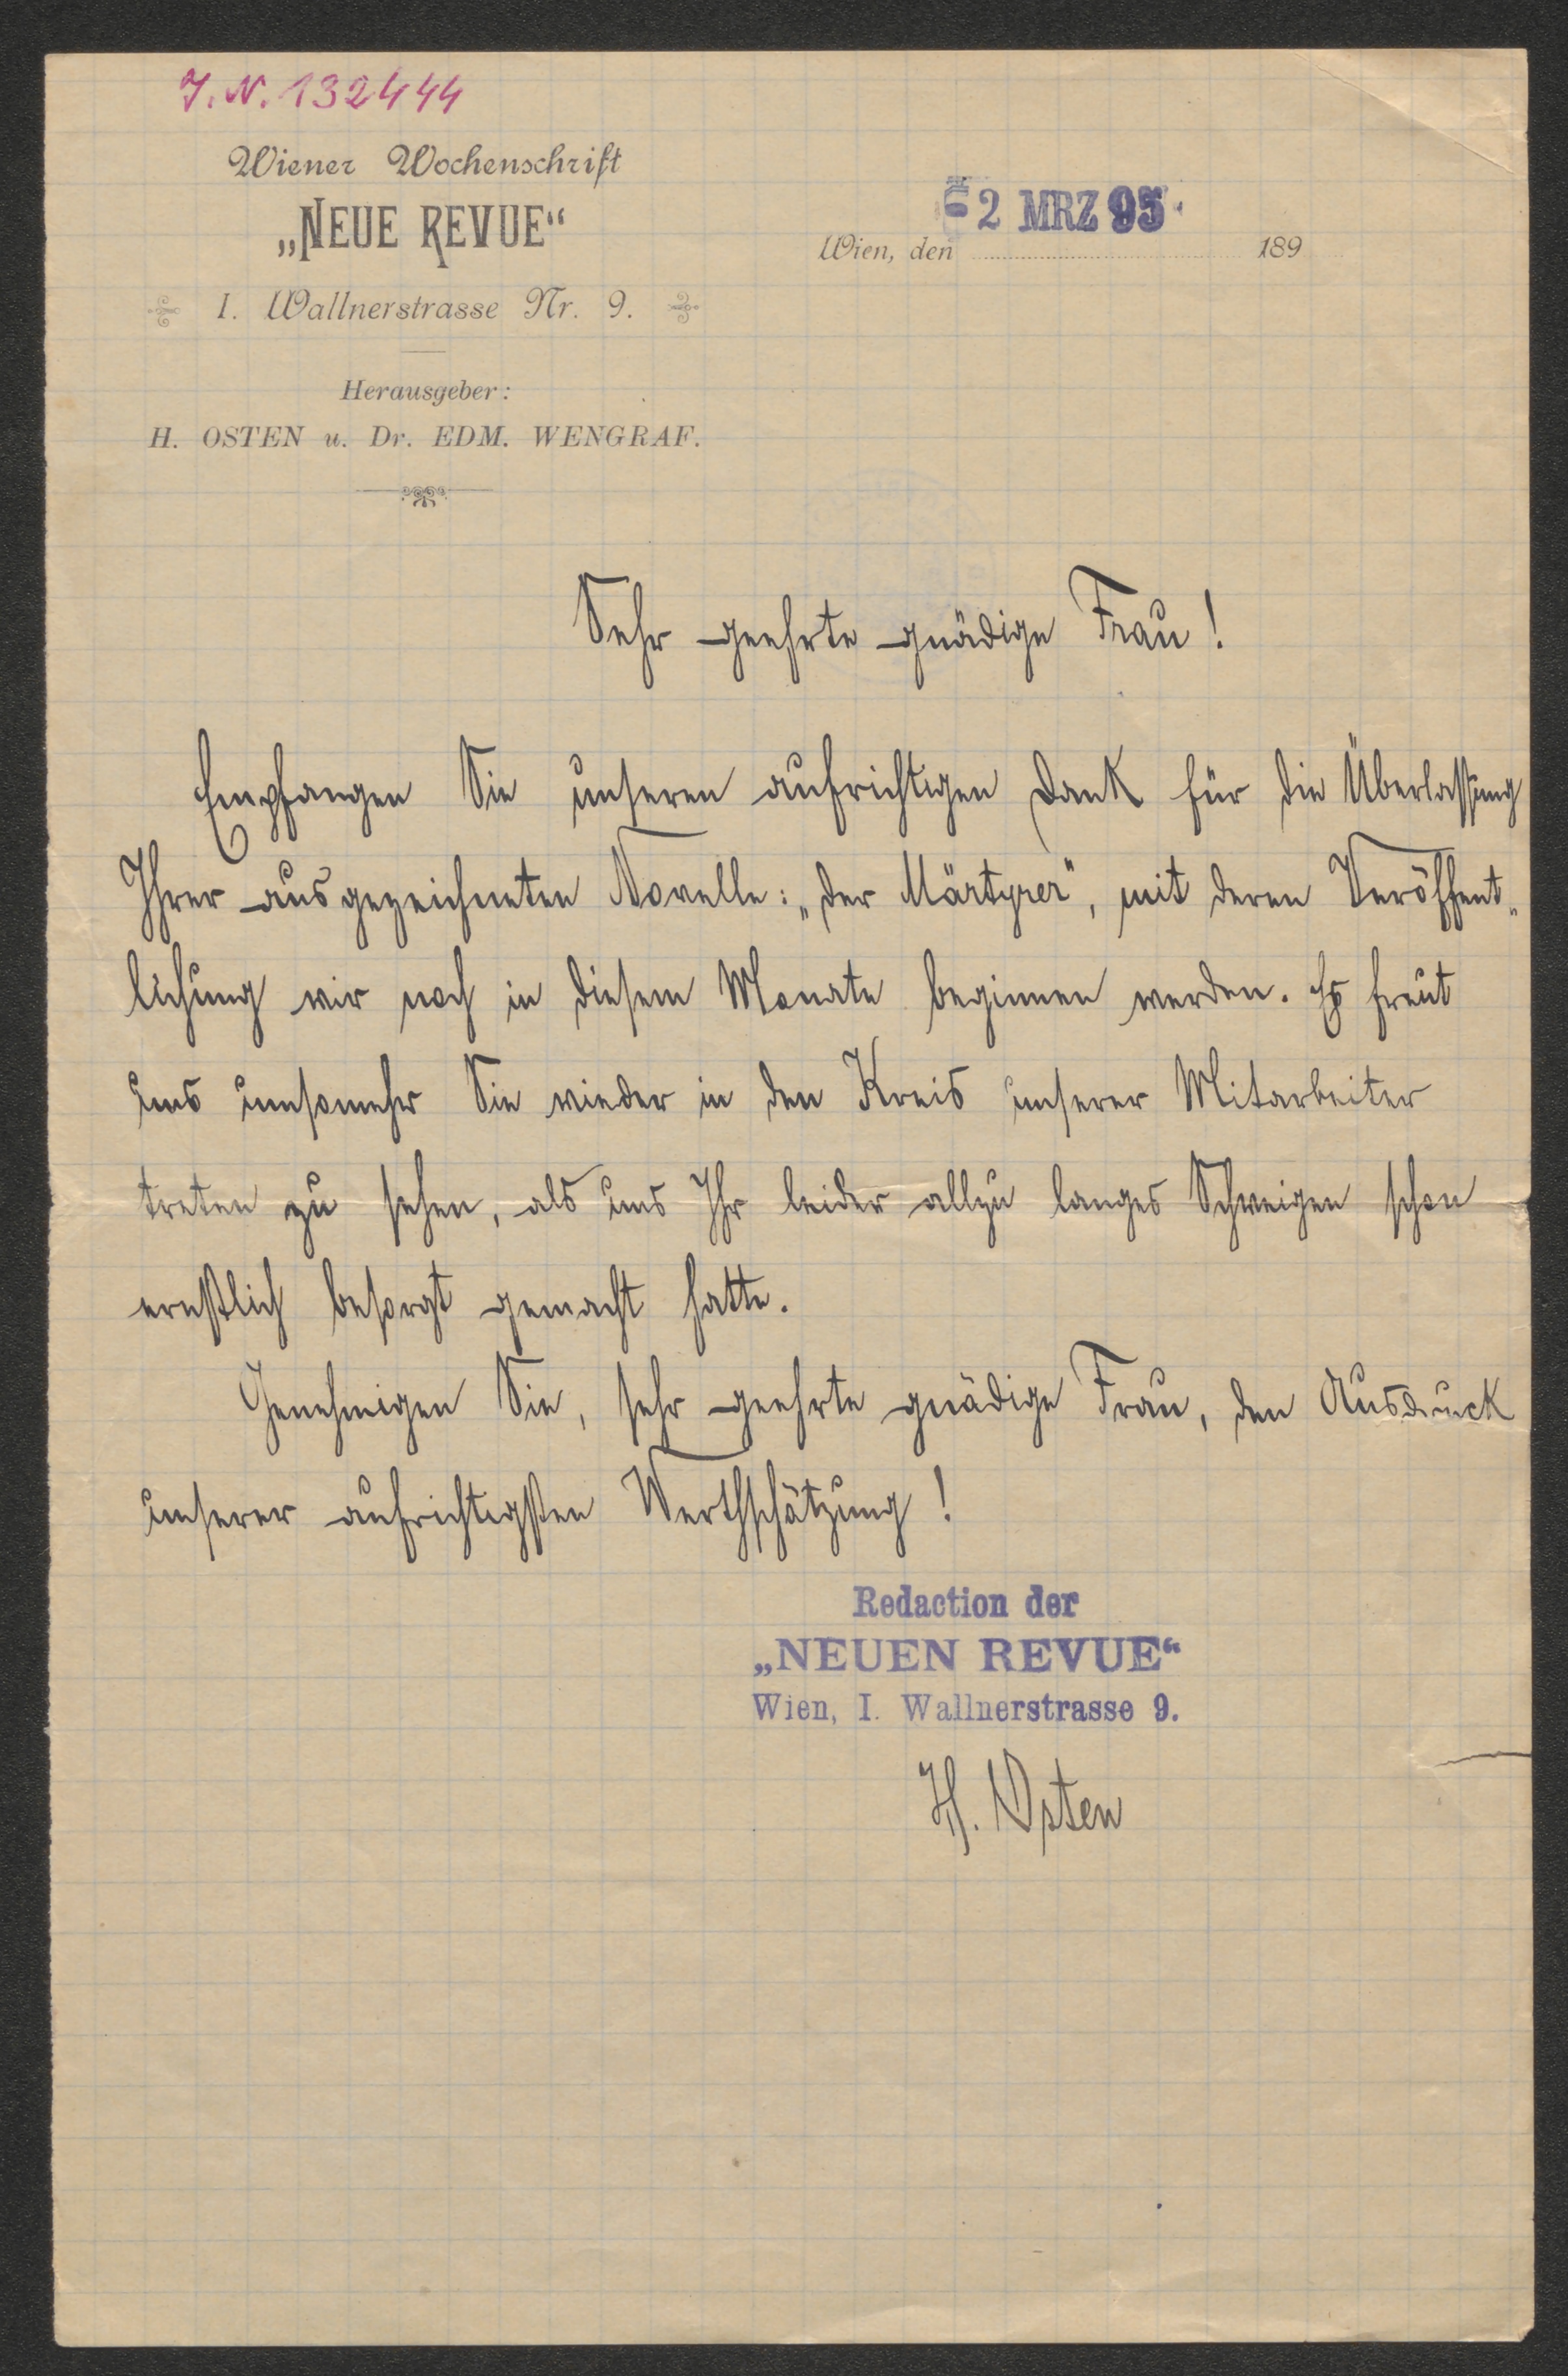 J. N. 132444
Wiener Wochenschrift
„NEUE REVUE“
I. Wallnerstrasse Nr. 9.
Herausgeber:
H. OSTEN u. Dr. EDM. WENGRAF.
2 MRZ 95
Wien, den 189
Sehr geehrte gnädige Frau!
Empfangen Sie unseren aufrichtigen Dank für die Überlassung
Ihrer ausgezeichneten Novelle: „Der Märtyrer“, mit deren Veröffent„
lichung wir noch in diesem Monate beginnen werden. Es freut
uns umsomehr Sie wieder in den Kreis unserer Mitarbeiter
treten zu sehen, als uns Ihr leider allzu langes Schweigen schon
ernstlich besorgt gemacht hatte.
Genehmigen Sie, sehr geehrte gnädige Frau, den Ausdruck
unserer aufrichtigsten Werthschätzung!
Redaction der
„NEUEN REVUE“
Wien, I. Wallnerstrasse 9.
H. Osten